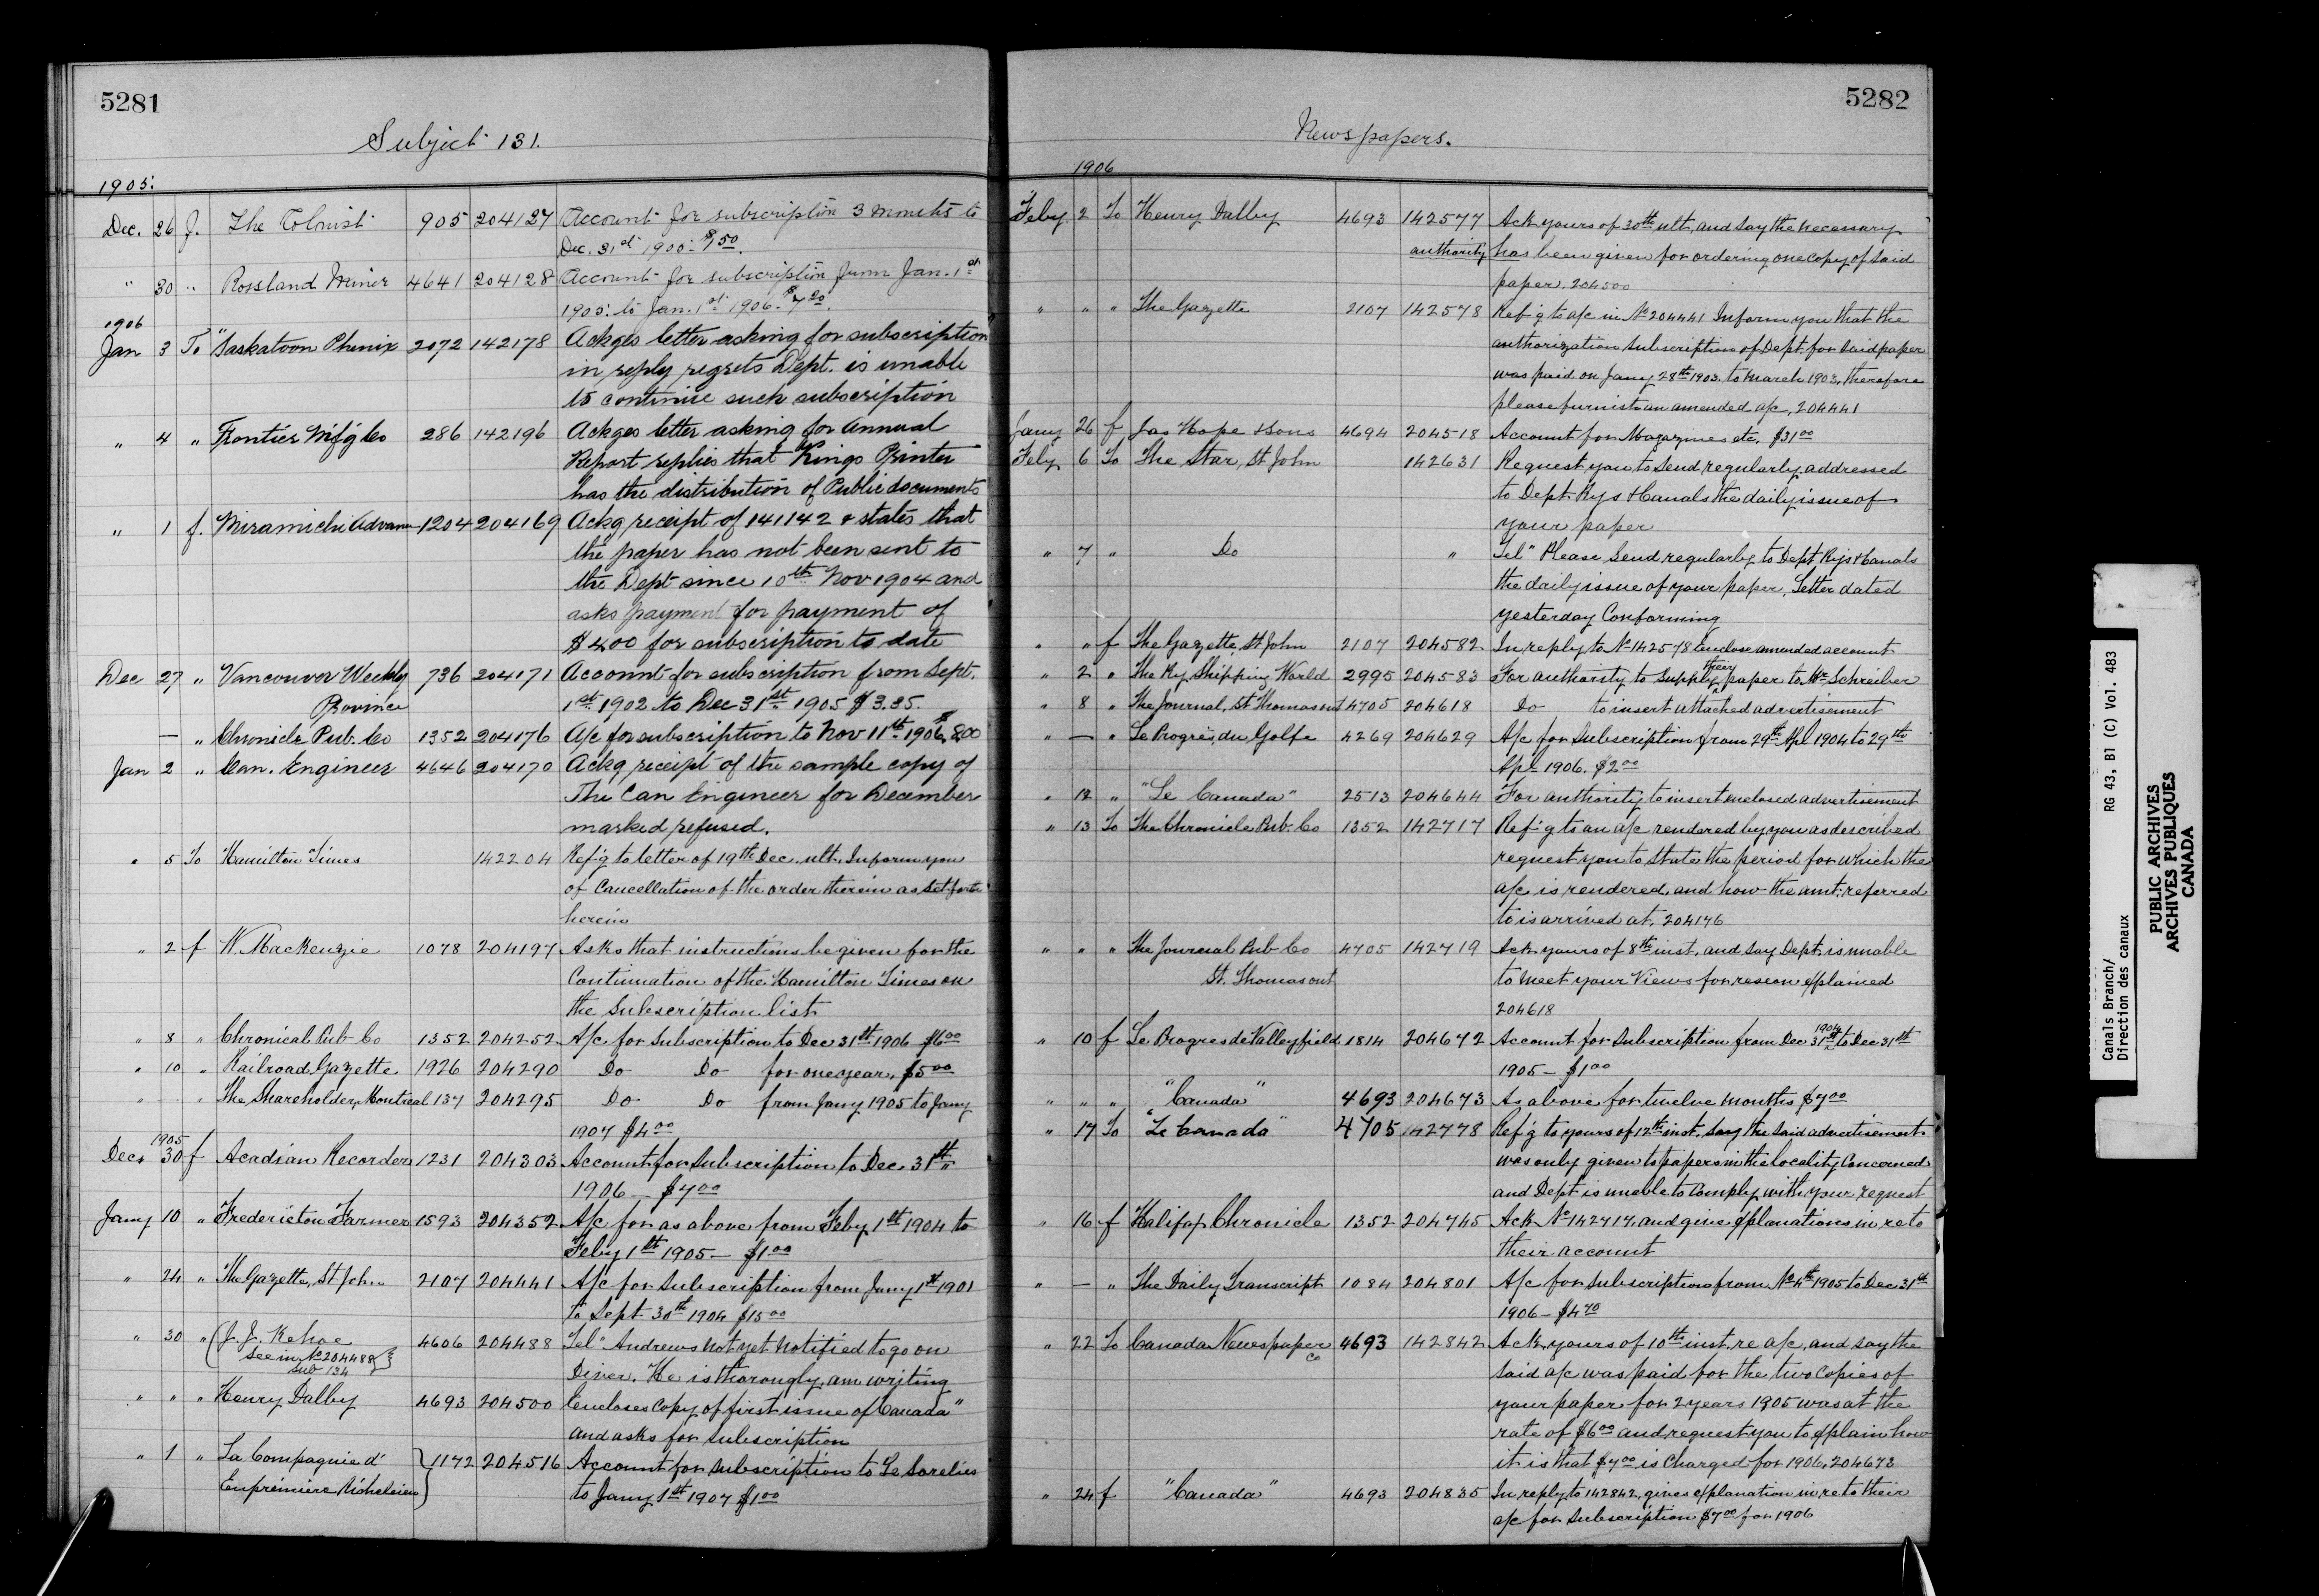 5281
Subject 131.
1905.
Dec. 26 f. The Colonist 905 204127 Account for subscription 3 months to
Dec. 31st 1905. $1.50.
" 30 " Rossland Miner 4641 204128 Account for subscription from Jan. 1st
1905. to Jan. 1st 1906.
1906
Jan 3 To "Saskatoon Phenix 2072 142178 Ackges letter asking for subscription
in reply regrets Dept. is unable
to continue such subscription
" 4 " Frontier Mfg Co 286 142196 Ackges letter asking for Annual
Report replies that Kings Printer
has the distribution of Public documents
" 1 f. Miramichi Advance 1204 204169 Ackg receipt of 141142 & states that
the paper has not been sent to
the Dept since 10th Nov 1904 and
asks payment for payment of
$4.00 for subscription to date
Dec 27 " Vancouver Weekly 736 204171 Account for subscription from Sept.
Province 1st 1902 to Dec 31st 1905 $3.35.
— " Chronicle Pub. Co 1352 204176 A/c for subscription to Nov 11th 1906 $8.00
Jan 2 " Can. Engineer 4646 204170 Ackg receipt of the sample copy of
The Can Engineer for December
marked refused.
" 5 To Hamilton Times 142204 Ref'g to letter of 19th Dec. ult. Inform you
of Cancellation of the order therein as set forth
herein
" 2 f W. MacKenzie 1078 204197 Asks that instructions be given for the
Continuation of the Hamilton Times on
the Subscription list
" 8 " Chronical Pub Co 1352 204252 A/c for Subscription to Dec 31st 1906 $6.00
" 10 " Railroad Gazette 1926 204290 Do Do for one year, $5.00
" " The Shareholder, Montreal 137 204295 Do Do from Jany 1905 to Jany
1907 $4.00
1905
Dec 30 f Acadian Recorder 1231 204303 Account for Subscription to Dec 31st
1906 — $7.00
Jany 10 " Fredericton Farmer 1593 204352 A/c for as above from Feby 1st 1904 to
Feby 1st 1905 — $1.00
" 24 " The Gazette, St John 2107 204441 A/c for Subscription from Jany 1st 1901
to Sept 30th 1904 $15.00
" 30 " J. J. Kehoe 4606 204488 Tel" Andrews not yet notified to go on
See in No 204488 Diver. He is thorougly, am writing
sub 134
" " " Henry Dalby 4693 204500 Encloses copy of first issue of "Canada"
and asks for Subscription
" 1 " La Compagnie d' 1172 204516 Account for Subscription to Le Sorelois
Enpremiere Richelieu to Jany 1st 1907 $1.00
5282
Newspapers.
1906
Feby 2 To Henry Dalby 4693 142577 Ack yours of 30th ult, and say the necessary
authority has been given for ordering one copy of said
paper. 204500
" " " The Gazette 2107 142578 Ref'g to a/c in No 204441 Inform you that the
authorization Subscription of Dept. for said paper
was paid on Jany 28th 1903. to March 1903, therefore
please furnish an amended a/c, 204441
Jany 26 f Jas Hope & Sons 4694 204518 Account for Magazines etc. $31.00
Feby 6 To The Star, St John 142631 Request you to send regularly addressed
to Dept. Rys & Canals the daily issue of
your paper
" 7 " Do " Tel" Please send regularly to Dept Rys & Canals
the daily issue of your paper, Letter dated
yesterday Conforming
" " f The Gazette, St John 2107 204582 In reply to No 142578 Enclose amended account
" 2 " The Ry Shipping World 2995 204583 For authority to supply their paper to Mr. Schreiber
" 8 " The Journal, St Thomas ont 4705 204618 Do to insert attached advertisement
" — " Le Progrès du Golfe 4269 204629 A/c for Subscription from 29th Apl 1904 to 29th
Apl 1906. $2.00
" 12 " "Le Canada" 2513 204644 For authority to insert enclosed advertisement
" 13 To The Chronicle Pub. Co 1352 142717 Ref'g to an a/c rendered by you as described
request you to state the period for which the
a/c is rendered, and how the amt. referred
to is arrived at, 204176
" " " The Journal Pub Co 4705 142719 Ack yours of 8th inst. and say Dept. is unable
St. Thomas ont to meet your Views for reason explained
204618
" 10 f Le Progres de Valleyfield 1814 204672 Account for Subscription from Dec 31st 1904 to Dec 31st
1905 — $1.00
" " " "Canada" 4693 204673 As above for twelve months $7.00
" 17 To "Le Canada" 4705 142778 Ref'g to yours of 12th inst. Say the said advertisement
was only given to papers in the locality Concerned
and Dept is unable to Comply with your request
" 16 f Halifax Chronicle 1352 204745 Ack No 142717, and give explanations in re to
their account
" — " The Daily Transcript 1084 204801 A/c for Subscription from No 4th 1905 to Dec 31st
1906 —
" 22 To Canada Newspaper Co 4693 142842 Ack yours of 10th inst. re a/c, and say the
said a/c was paid for the two Copies of
your paper for 2 years 1905 was at the
rate of $6.00 and request you to explain how
it is that $7.00 is Charged for 1906, 204673
" 24 f "Canada" 4693 204835 In reply to 142842, gives explanation in re to their
a/c for Subscription $7.00 for 1906
Canals Branch/
Direction des canaux
RG 43, B1 (C) Vol. 483
PUBLIC ARCHIVES
ARCHIVES PUBLIQUES
CANADA